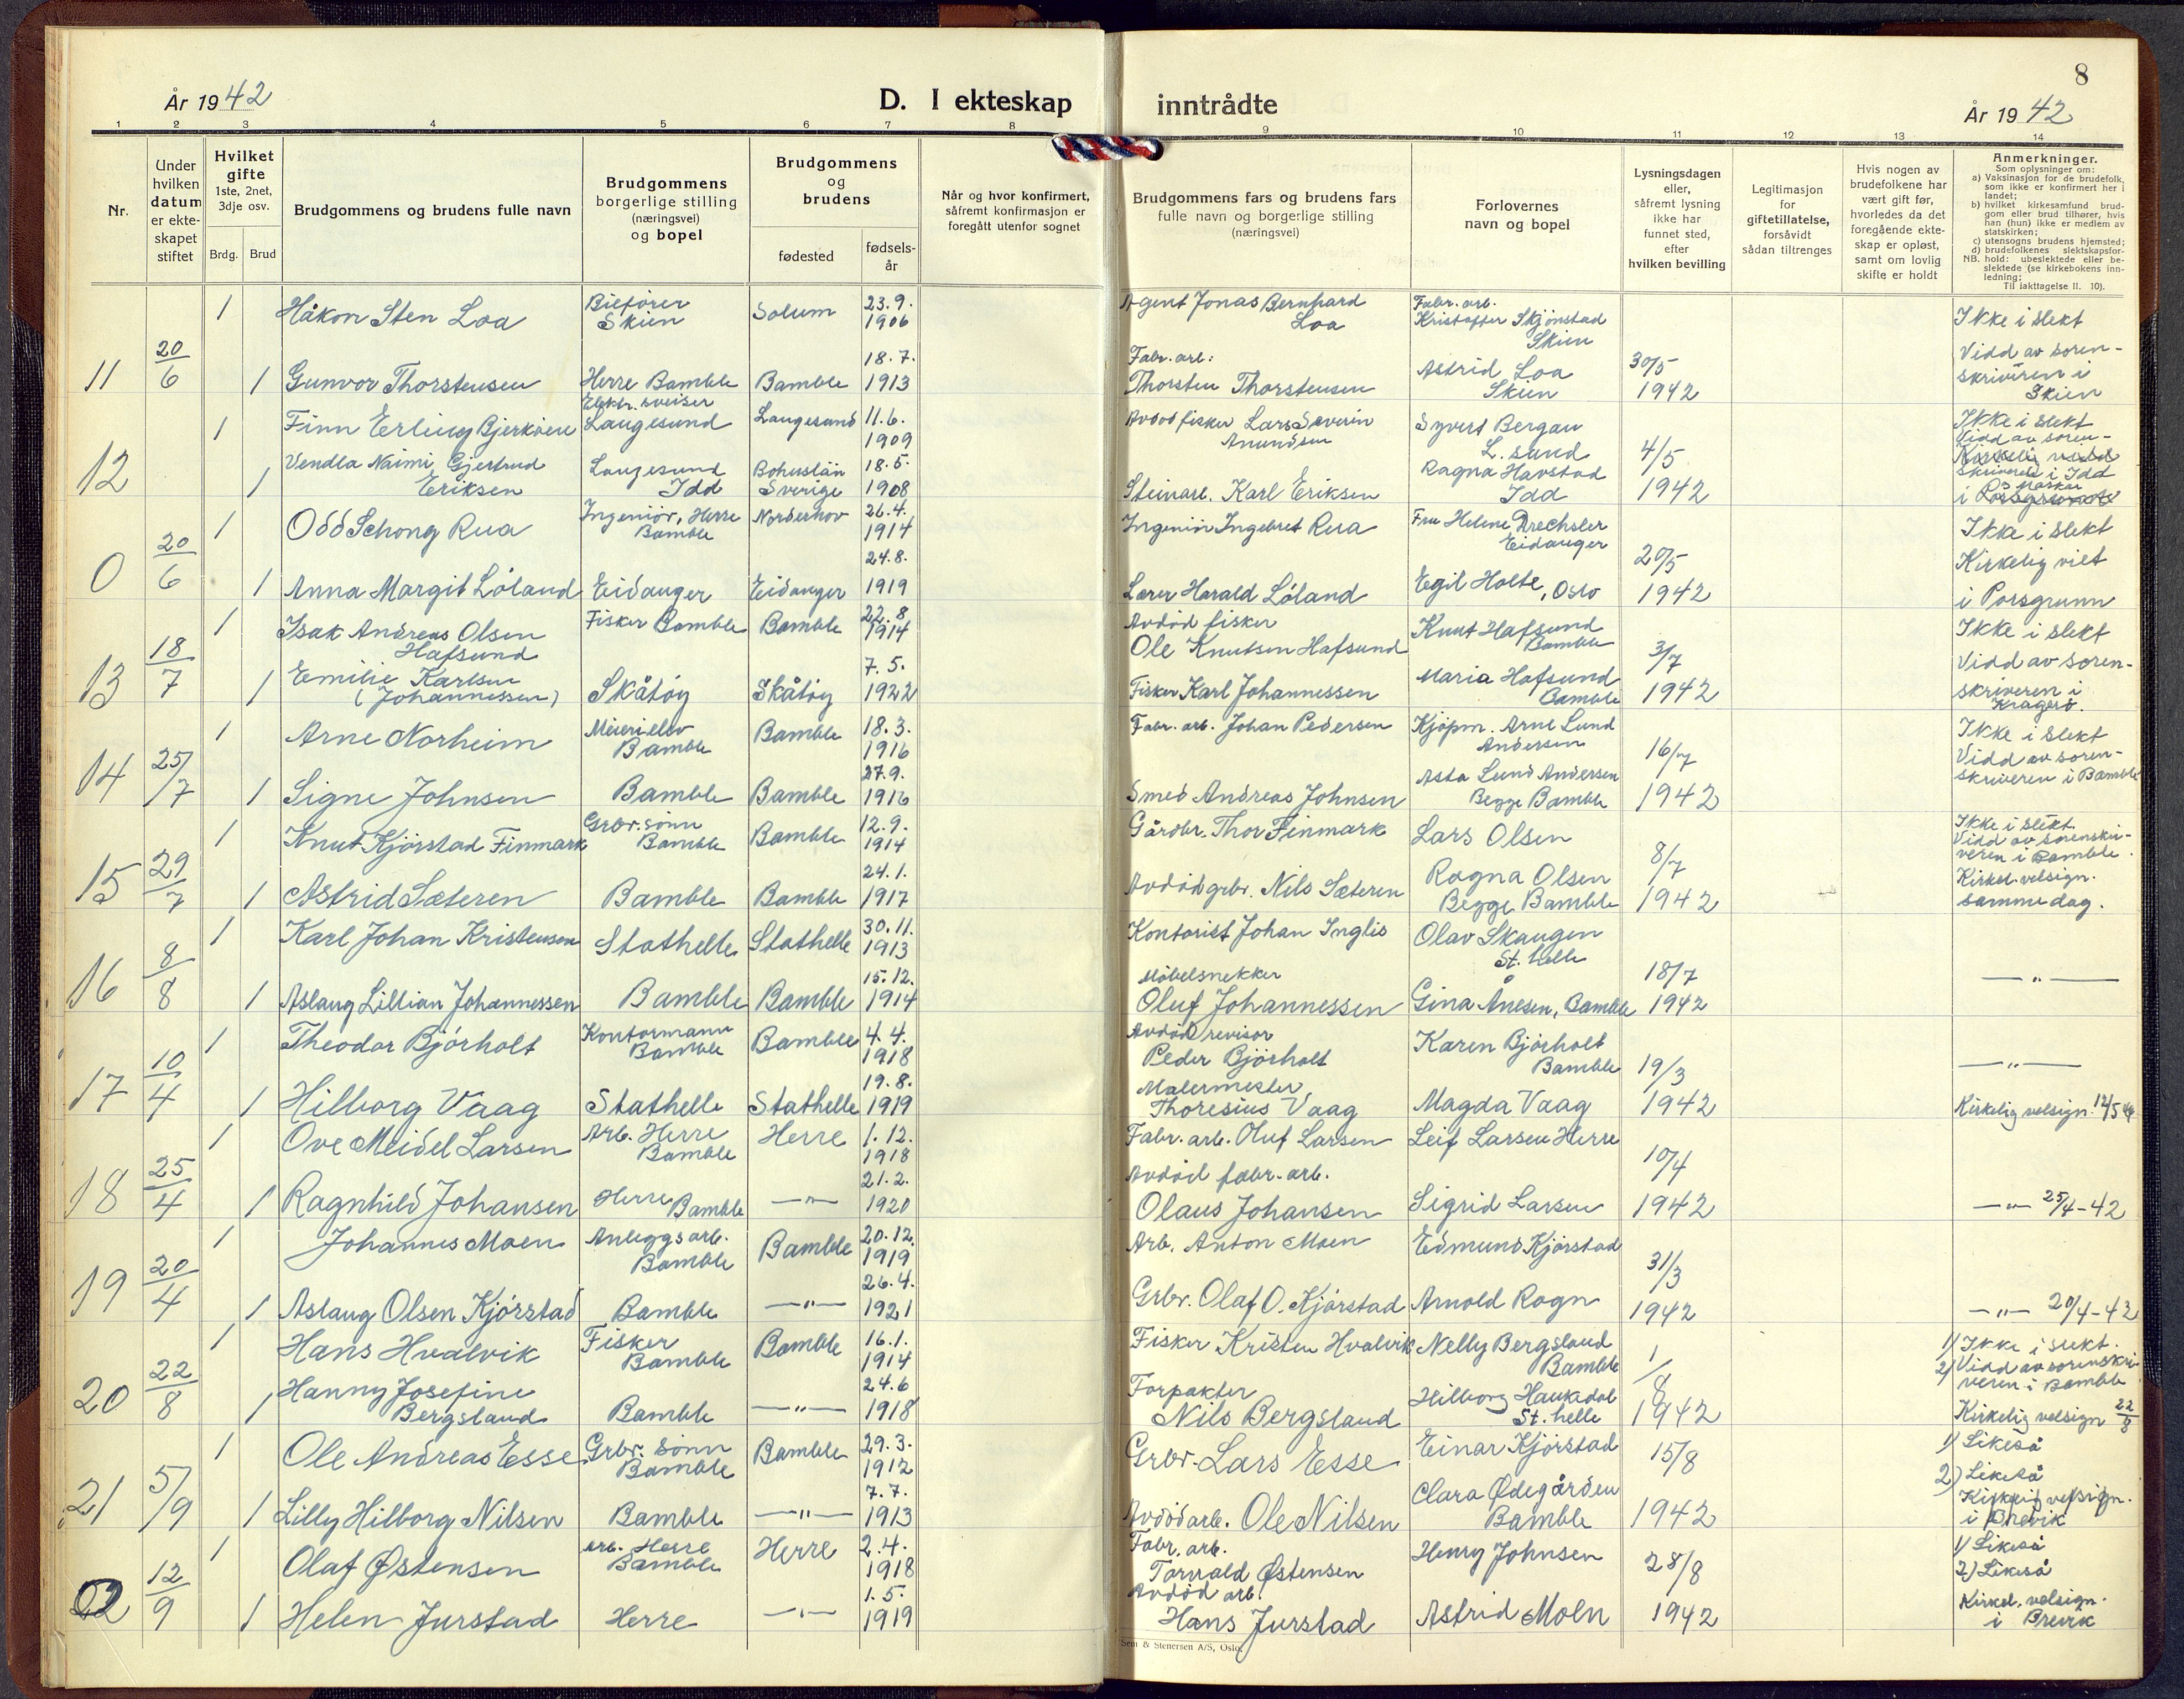 8
År 1942
D. I ekteskap inntrådte
År 1942
1 2 3 4 5 6 7 8 9 10 11 12 13 14
Nr.
Under hvilken datum er ekteskapet stiftet
Hvilket gifte 1ste, 2net, 3dje osv.
Brdg. Brud
Brudgommens og brudens fulle navn
Brudgommens borgerlige stilling (næringsvei) og bopel
Brudgommens og brudens
fødested fødselsår
Når og hvor konfirmert, såfremt konfirmasjon er foregått utenfor sognet
Brudgommens fars og brudens fars fulle navn og borgerlige stilling (næringsvei)
Forlovernes navn og bopel
Lysningsdagen eller, såfremt lysning ikke har funnet sted, efter hvilken bevilling
Legitimasjon for giftetillatelse, forsåvidt sådan tiltrenges
Hvis nogen av brudefolkene har vært gift før, hvorledes da det foregående ekteskap er opløst, samt om lovlig skifte er holdt
Anmerkninger.
Som oplysninger om:
a) Vaksinasjon for de brudefolk, som ikke er konfirmert her i landet;
b) hvilket kirkesamfund brudgom eller brud tilhører, hvis han (hun) ikke er medlem av statskirken;
c) utensogns brudens hjemsted;
d) brudefolkenes slektskapsforhold: ubeslektede eller beslektede (se kirkebokens innledning;
NB.
Til iakttagelse II. 10).
11 20/6
1 Håkon Sten Loa Bilfører Skien Solum 23.9. 1906 Agent Jonas Bernhard Loa Fabr. arb. Kristoffer Skjönstad Skien Ikke i slekt
1 Gunvor Thorstensen Herre Bamble Bamble 18.7. 1913 Fabr. arb. Thorsten Thorstensen Astrid Loa Skien 30/5 1942 Vidd av sorenskriveren i Skien
12
1 Finn Erling Bjerköen Elektr. sveiser Langesund Langesund 11.6. 1909 Avdöd fisker Lars Severin Amundsen Syvert Bergan L. sund Ikke i slekt
1 Vendla Naimi Gjertrud Eriksen Langesund Idd Bohuslän Sverige 18.5. 1908 Steinarb. Karl Eriksen Ragna Havstad Idd 4/5 1942 Vidd av sorenskriveren i Idd
0 20/6
1 Odd Schong Rua Ingeniör, Herre Bamble Norderhov 26.4. 1914 Ingeniör Ingebret Rua Fru Helene Drechsler Eidanger Ikke i slekt
1 Anna Margit Löland Eidanger Eidanger 24.8. 1919 Lærer Harald Löland Egil Holte, Oslo 20/5 1942 Kirkelig viet i Porsgrunn
13 18/7
1 Isak Andreas Olsen Hafsund Fisker Bamble Bamble 22.8 1914 Avdöd fisker Ole Knutsen Hafsund Knut Hafsund Bamble Ikke i slekt
1 Emilie Karlsen (Johannessen) Skåtöy Skåtöy 7.5. 1922 Fisker Karl Johannessen Maria Hafsund Bamble 3/7 1942 Vidd av sorenskriveren i Kragerö.
14 25/7
1 Arne Norheim Meierielev Bamble Bamble 18.3. 1916 Fabr. arb. Johan Pedersen Kjöpm. Arne Lund Andersen Ikke i slekt
1 Signe Johnsen Bamble Bamble 27.9. 1916 Smed Andreas Johnsen Asta Lund Andersen Begge Bamble 16/7 1942 Vidd av sorenskriveren i Bamble
15 29/7
1 Knut Kjörstad Finmark Grbr. sönn Bamble Bamble 12.9. 1914 Gårdbr. Thor Finmark Lars Olsen Ikke i slekt. Vidd av sorenskriveren i Bamble.
1 Astrid Sæteren Bamble Bamble 24.1. 1917 Avdöd grbr. Nils Sæteren Ragna Olsen Begge Bamble 8/7 1942 Kirkel. velsign. samme dag.
16 8/8
1 Karl Johan Kristensen Stathelle Stathelle 30.11. 1913 Kontorist Johan Inglis Olav Skaugen St. helle
1 Aslaug Lillian Johannessen Bamble Bamble 15.12. 1914 Möbelsnekker Oluf Johannessen Gina Ånesen, Bamble 18/7 1942 — " —
17 10/4
1 Theodor Björholt Kontormann Bamble Bamble 4.4. 1918 Avdöd revisor Peder Björholt Karen Björholt Bamble — " —
1 Hilborg Vaag Stathelle Stathelle 19.8. 1919 Malermester Thoresius Vaag Magda Vaag 19/3 1942 Kirkelig velsign. 12/5
18 25/4
1 Ove Meidel Larsen Arb. Herre Bamble Herre 1.12. 1918 Fabr. arb. Oluf Larsen Leif Larsen Herre
1 Ragnhild Johansen Herre Bamble — " — 21.2. 1920 Avdöd fabr. arb. Olaus Johansen Sigrid Larsen 10/4 1942 — " — 25/4-42
19 20/4
1 Johannes Moen Anleggsarb. Bamble Bamble 20.12. 1919 Arb. Anton Moen Edmund Kjörstad
1 Aslaug Olsen Kjörstad Bamble — " — 26.4. 1921 Grbr. Olaf O. Kjörstad Arnold Rogn 31/3 1942 — " — 20/4-42
20 22/8
1 Hans Hvalvik Fisker Bamble Bamble 16.1. 1914 Fisker Kristen Hvalvik Nelly Bergsland Bamble 1) Ikke i slekt.
1 Hanny Josefine Bergsland Bamble — " — 24.6 1918 Forpakter Nils Bergsland Hilborg Haukedal St. helle 1/8 1942 2) Vidd av sorenskriveren i Bamble Kirkelig velsign 22/8
21 5/9
1 Ole Andreas Esse Grbr. sönn Bamble Bamble 29.3. 1912 Grbr. Lars Esse Einar Kjörstad 1) Likeså
1 Lilly Hilborg Nilsen Bamble — " — 7.7. 1913 Avdöd arb. Ole Nilsen Clara Ødegården Bamble 15/8 1942 2) Likeså Kirkelig velsign. i Brevik
22 12/9
1 Olaf Østensen Arb. Herre Bamble Herre 2.4. 1918 Fabr. arb. Torvald Østensen Henry Johnsen 1) Likeså
1 Helen Jurstad Herre — " — 1.5. 1919 Avdöd arb. Hans Jurstad Astrid Moln 28/8 1942 2) Likeså Kirkel. velsign. i Brevik
Sem & Stenersen A/S, Oslo.